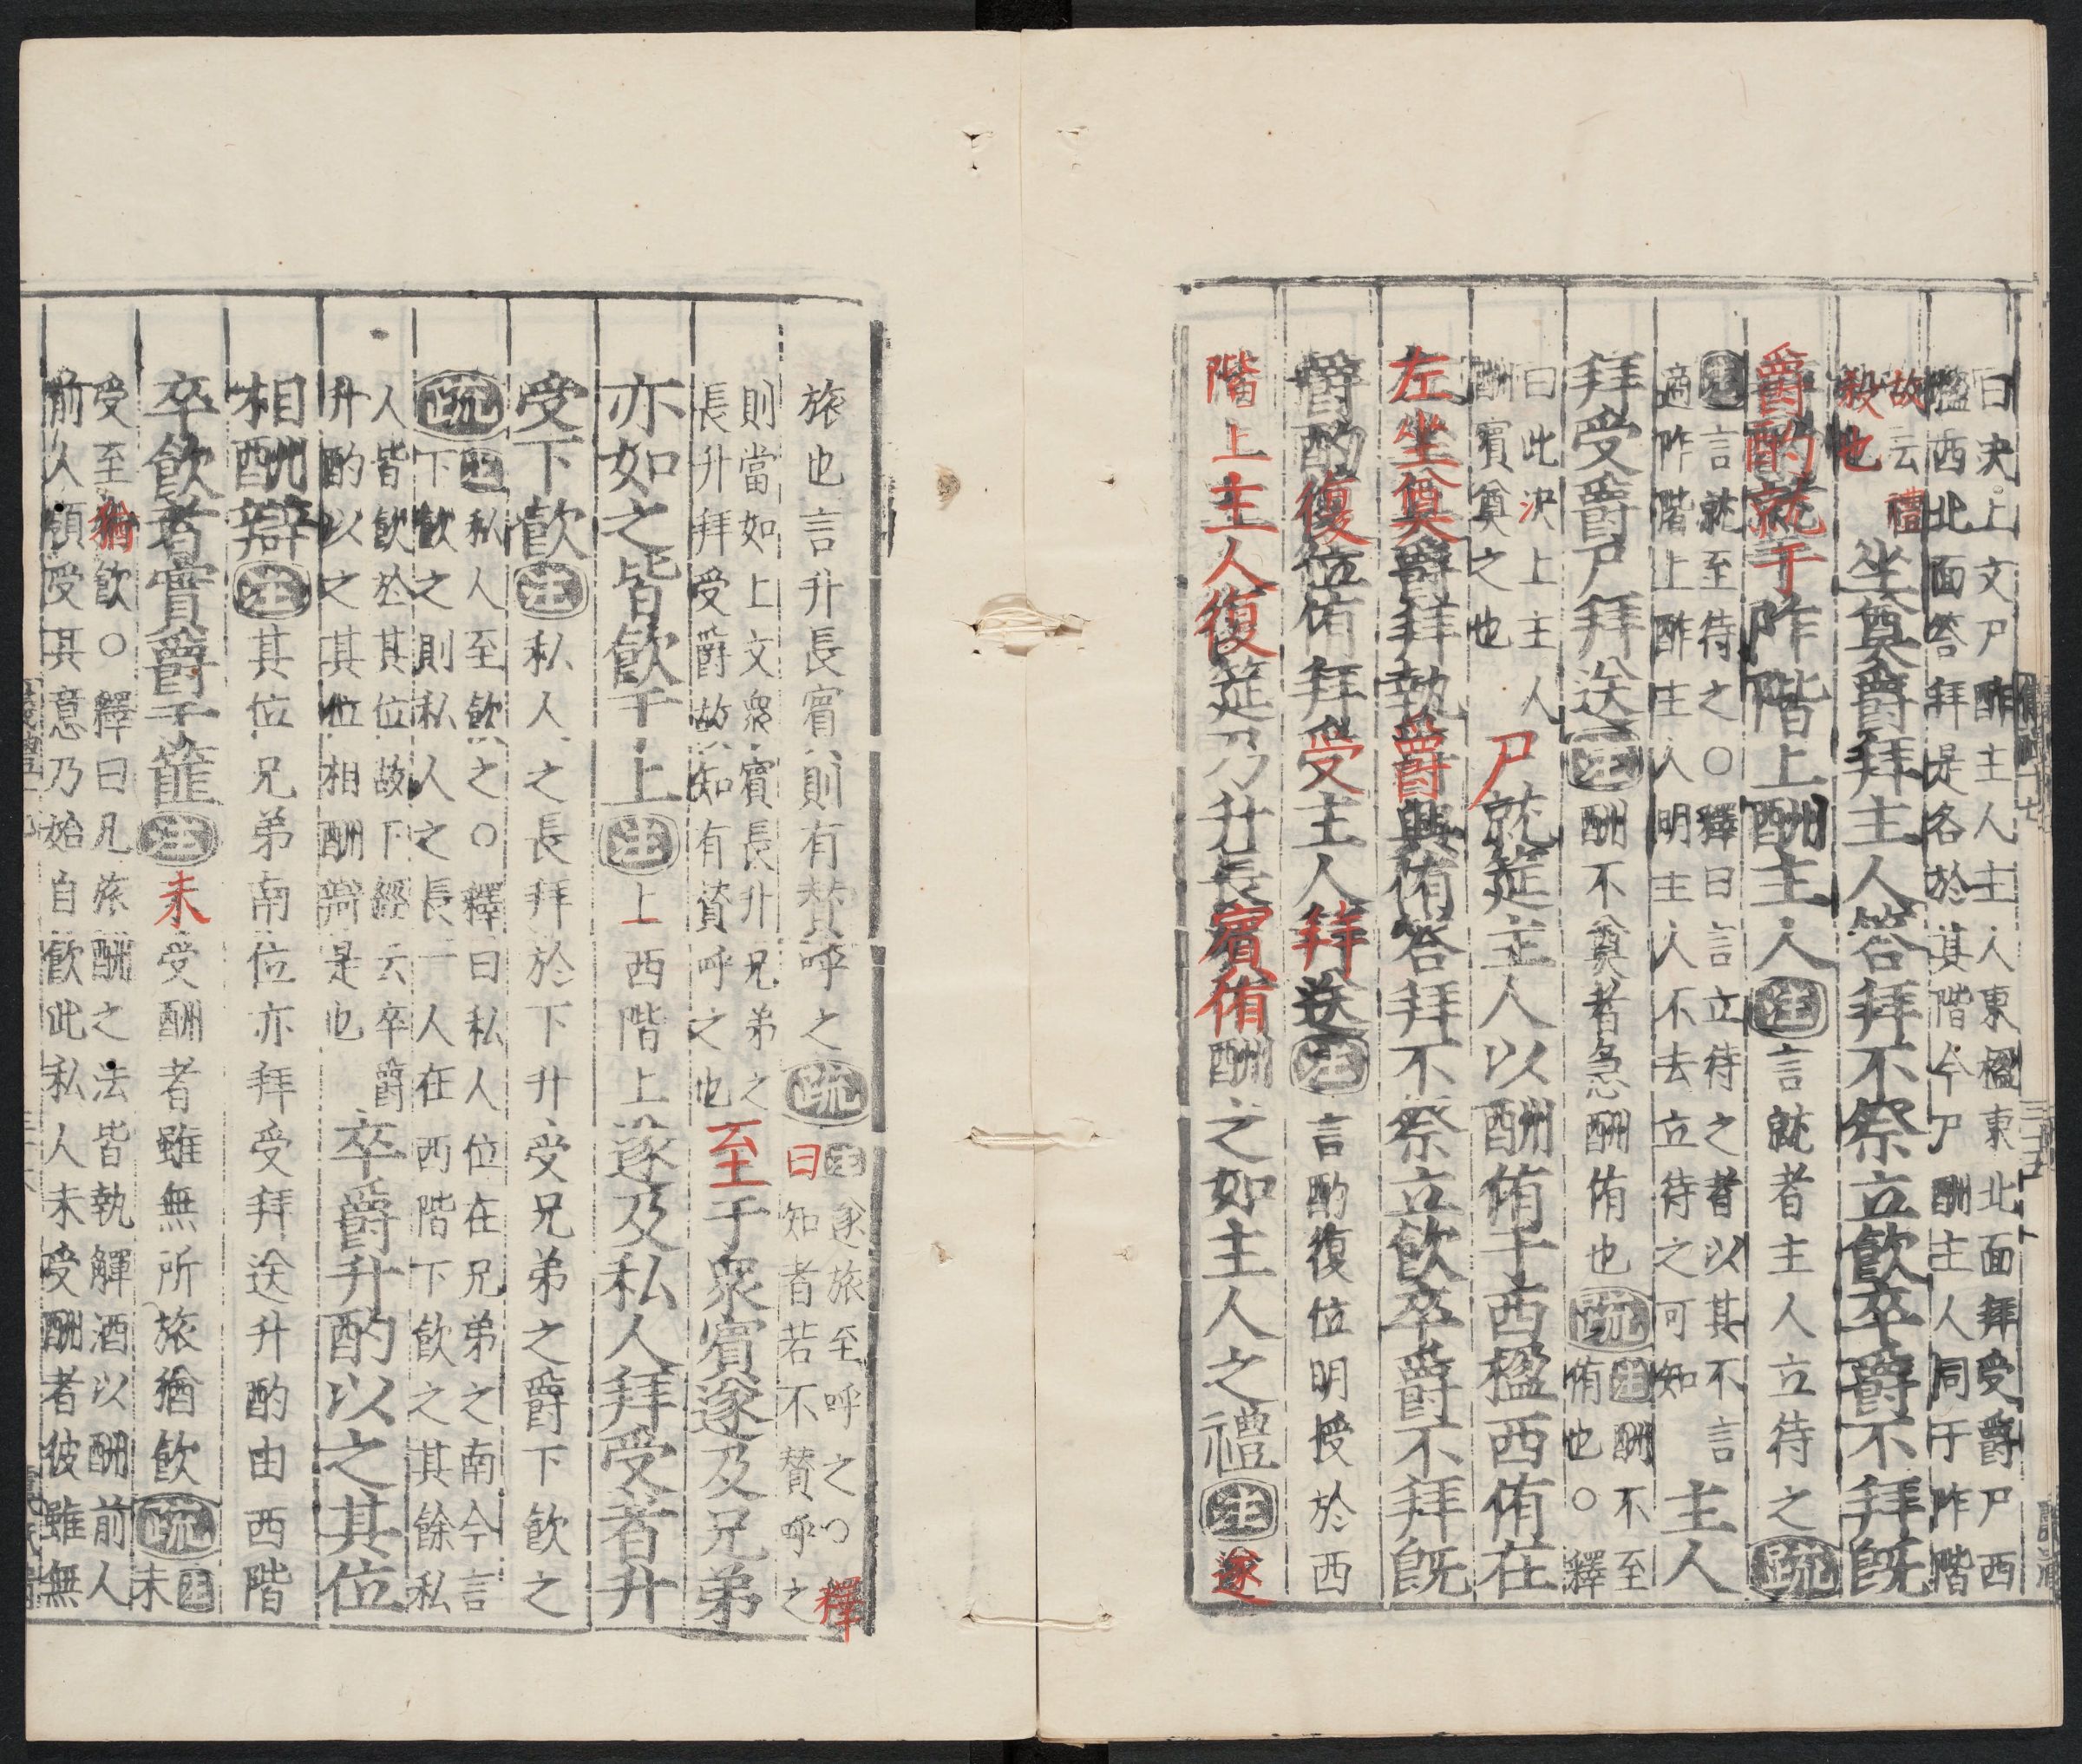 曰决上文尸酢主人主人東楹東北面拜受爵尸西
楹西北面答拜是各於其階今尸酬主人同于阼階
故云禮
殺也
坐奠爵拜主人答拜不祭立飲卒爵不拜既
爵酌就于阼階上酬主人注言就者主人立待之疏
注言就至待之○釋曰言立待之者以其不言
適阼階上酢主人明主人不去立待之可知
主人
拜受爵尸拜送注酬不奠者急酬侑也疏
注酬不至
侑也○釋
曰此決上主人
酬賓奠之也
尸就筵主人以酬侑于西楹西侑在
左坐奠爵拜執爵興侑答拜不祭立飲卒爵不拜既
爵酌復位侑拜受主人拜送注言酌復位明授於西
階上主人復筵乃升長賓侑酬之如主人之禮注遂
旅也言升長賓則有贊呼之疏
注遂旅至呼之○釋
曰知者若不贊呼之
則當如上文衆賓長升兄弟之
長升拜受爵故知有贊呼之也
至于衆賓遂及兄弟
亦如之皆飲于上注上西階上遂及私人拜受者升
受下飲注私人之長拜於下升受兄弟之爵下飲之
疏
注私人至飲之○釋曰私人位在兄弟之南今言
下飲之則私人之長一人在西階下飲之其餘私
人皆飲於其位故下經云卒爵
升酌以之其位相酬辯是也
卒爵升酌以之其位
相酬辯注其位兄弟南位亦拜受拜送升酌由西階
卒飲者實爵于篚注未受酬者雖無所旅猶飲疏
注
未
受至猶飲○釋曰凡旅酬之法皆執觶酒以酬前人
前人領受其意乃始自飲此私人未受酬者彼雖無